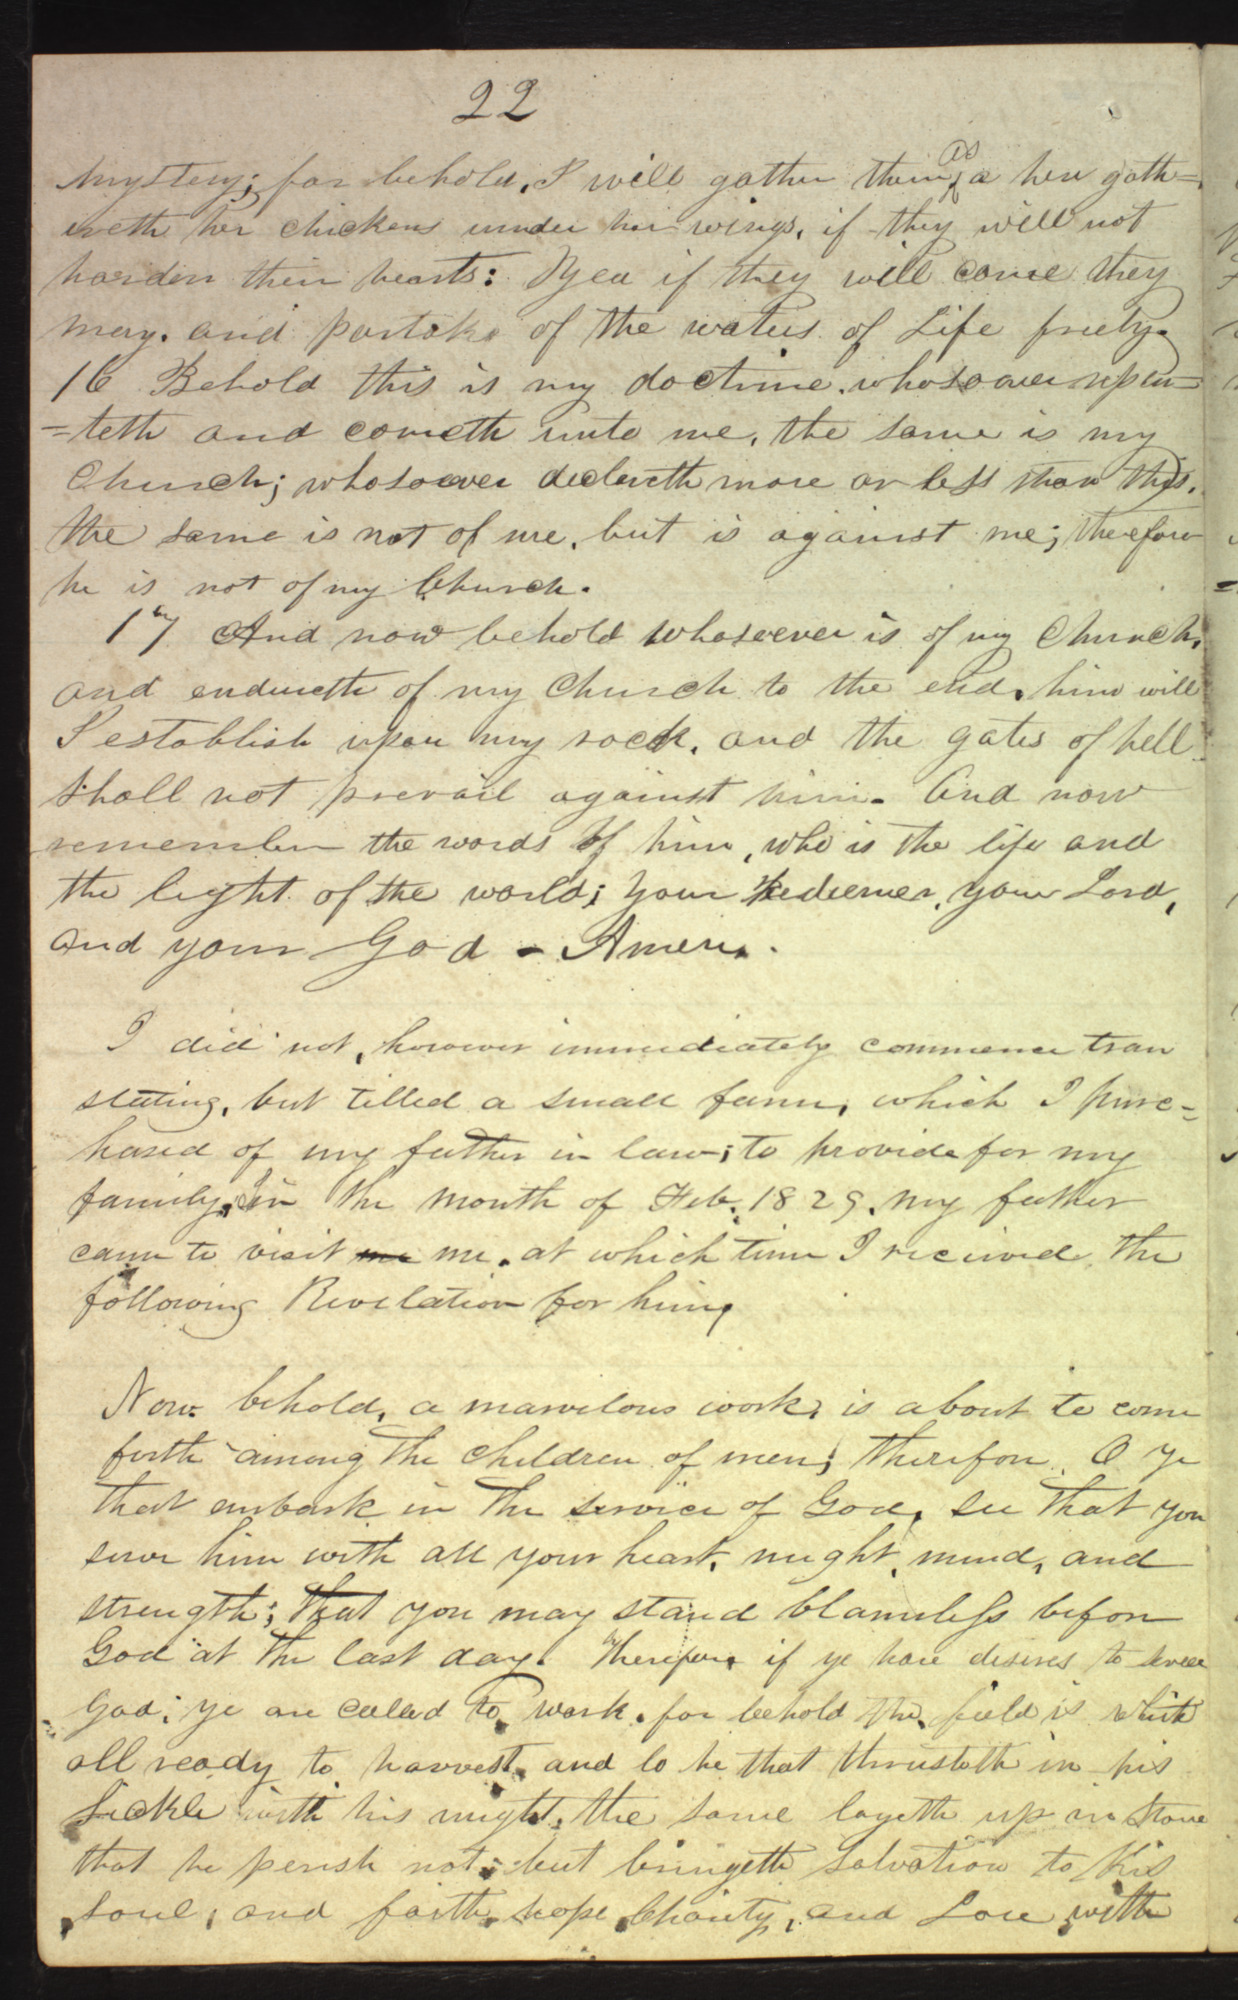 22
Mystery; for behold, I will gather them, as a hen gath=
ereth her chickens under her wings, if they will not
harden their hearts: Yea if they will come they
may. and partake of the waters of Life freely.
16 Behold this is my doctrine. whosoever repen=
=teth and cometh unto me, the same is my
Church; whosoever declareth more or less than this,
the same is not of me, but is against me; therefore
he is not of my Church.
17 And now behold whosoever is of my Church,
and endureth of my Church to the end, him will
I establish upon my rock, and the gates of hell
shall not prevail against him. And now
remember the words of him, who is the life and
the light of the world; your Redeemer, your Lord,
and your God - Amen.
I did not, however immediately commence tran
slating, but tilled a small farm, which I purc=
hased of my father in law; to provide for my
family, In the month of Feb. 1829, my father
came to visit me me. at which time I received the
following Revelation for him,
Now behold, a marvelous work, is about to come
forth among the children of men; therefore O ye
that embark in the service of God, see that you
serve him with all your heart, might, mind, and
strength; that you may stand blameless before
God at the last day. Therefore if ye have desires to serve
God; ye are called to work. for behold the field is white
all ready to harvest, and lo he that thrusteth in his
Sickle with his might, the same layeth up in store
that he perish not; but bringeth Salvation to his
Soul, and faith, hope, Charity, and Love, with